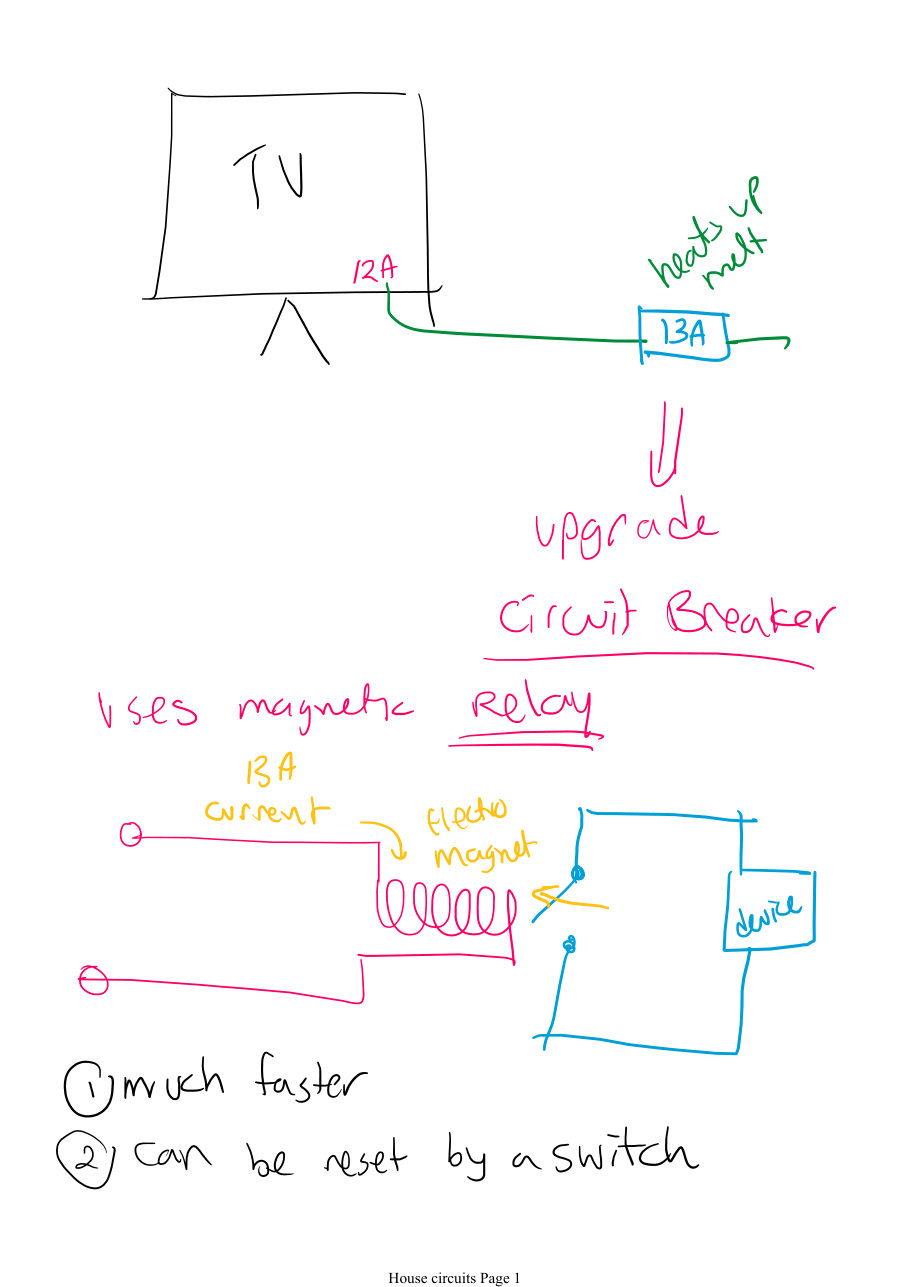 TV
12A
heats up
melt
13A
upgrade
Circuit Breaker
Uses magnetic Relay
13A
current
Electro
magnet
device
1) much faster
2) Can be reset by a switch
House circuits Page 1